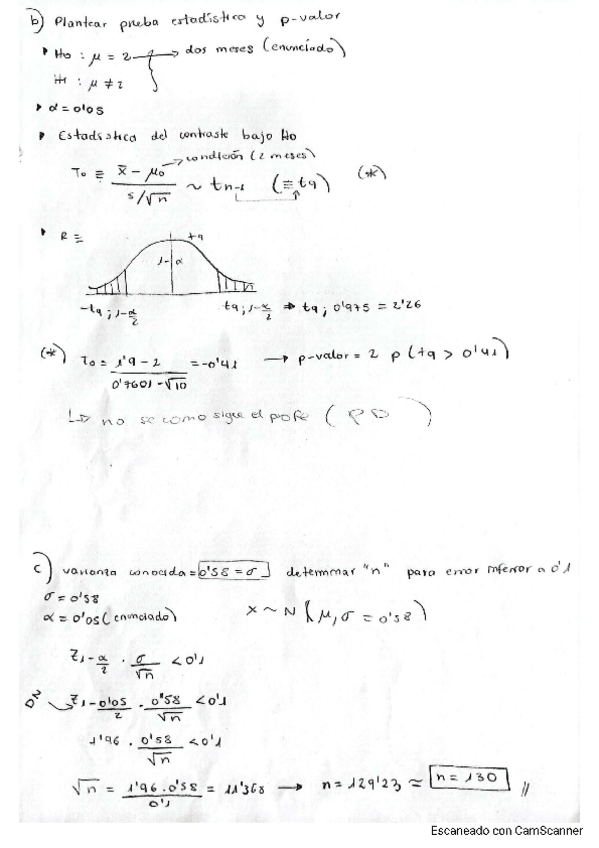 b) Plantear prueba estadística y p-valor
Ho : μ = 2 → dos meses (enunciado)
H1 : μ ≠ 2
α = 0'05
Estadística del contraste bajo Ho
To ≡ x̄ - μo / s/√n ~ tn-1 (≡ t9) (*)
→ condición (2 meses)
R ≡ t9
1-α
-t9; 1-α/2 t9; 1-α/2 ⇒ t9; 0'975 = 2'26
(*) To = 1'9 - 2 / 0'7601 - √10 = -0'41 → p-valor = 2 p (t9 > 0'41)
↳ no se como sigue el pofe (PD)
c) varianza conocida = 0'58 = σ determinar "n" para error inferior a 0'1
σ = 0'58
α = 0'05 (enunciado) X ~ N(μ, σ = 0'58)
Z1-α/2 · σ/√n < 0'1
Z1-0'05/2 · 0'58/√n < 0'1
1'96 · 0'58/√n < 0'1
√n = 1'96 · 0'58 / 0'1 = 11'368 → n = 129'23 ≈ n = 130 //
Escaneado con CamScanner